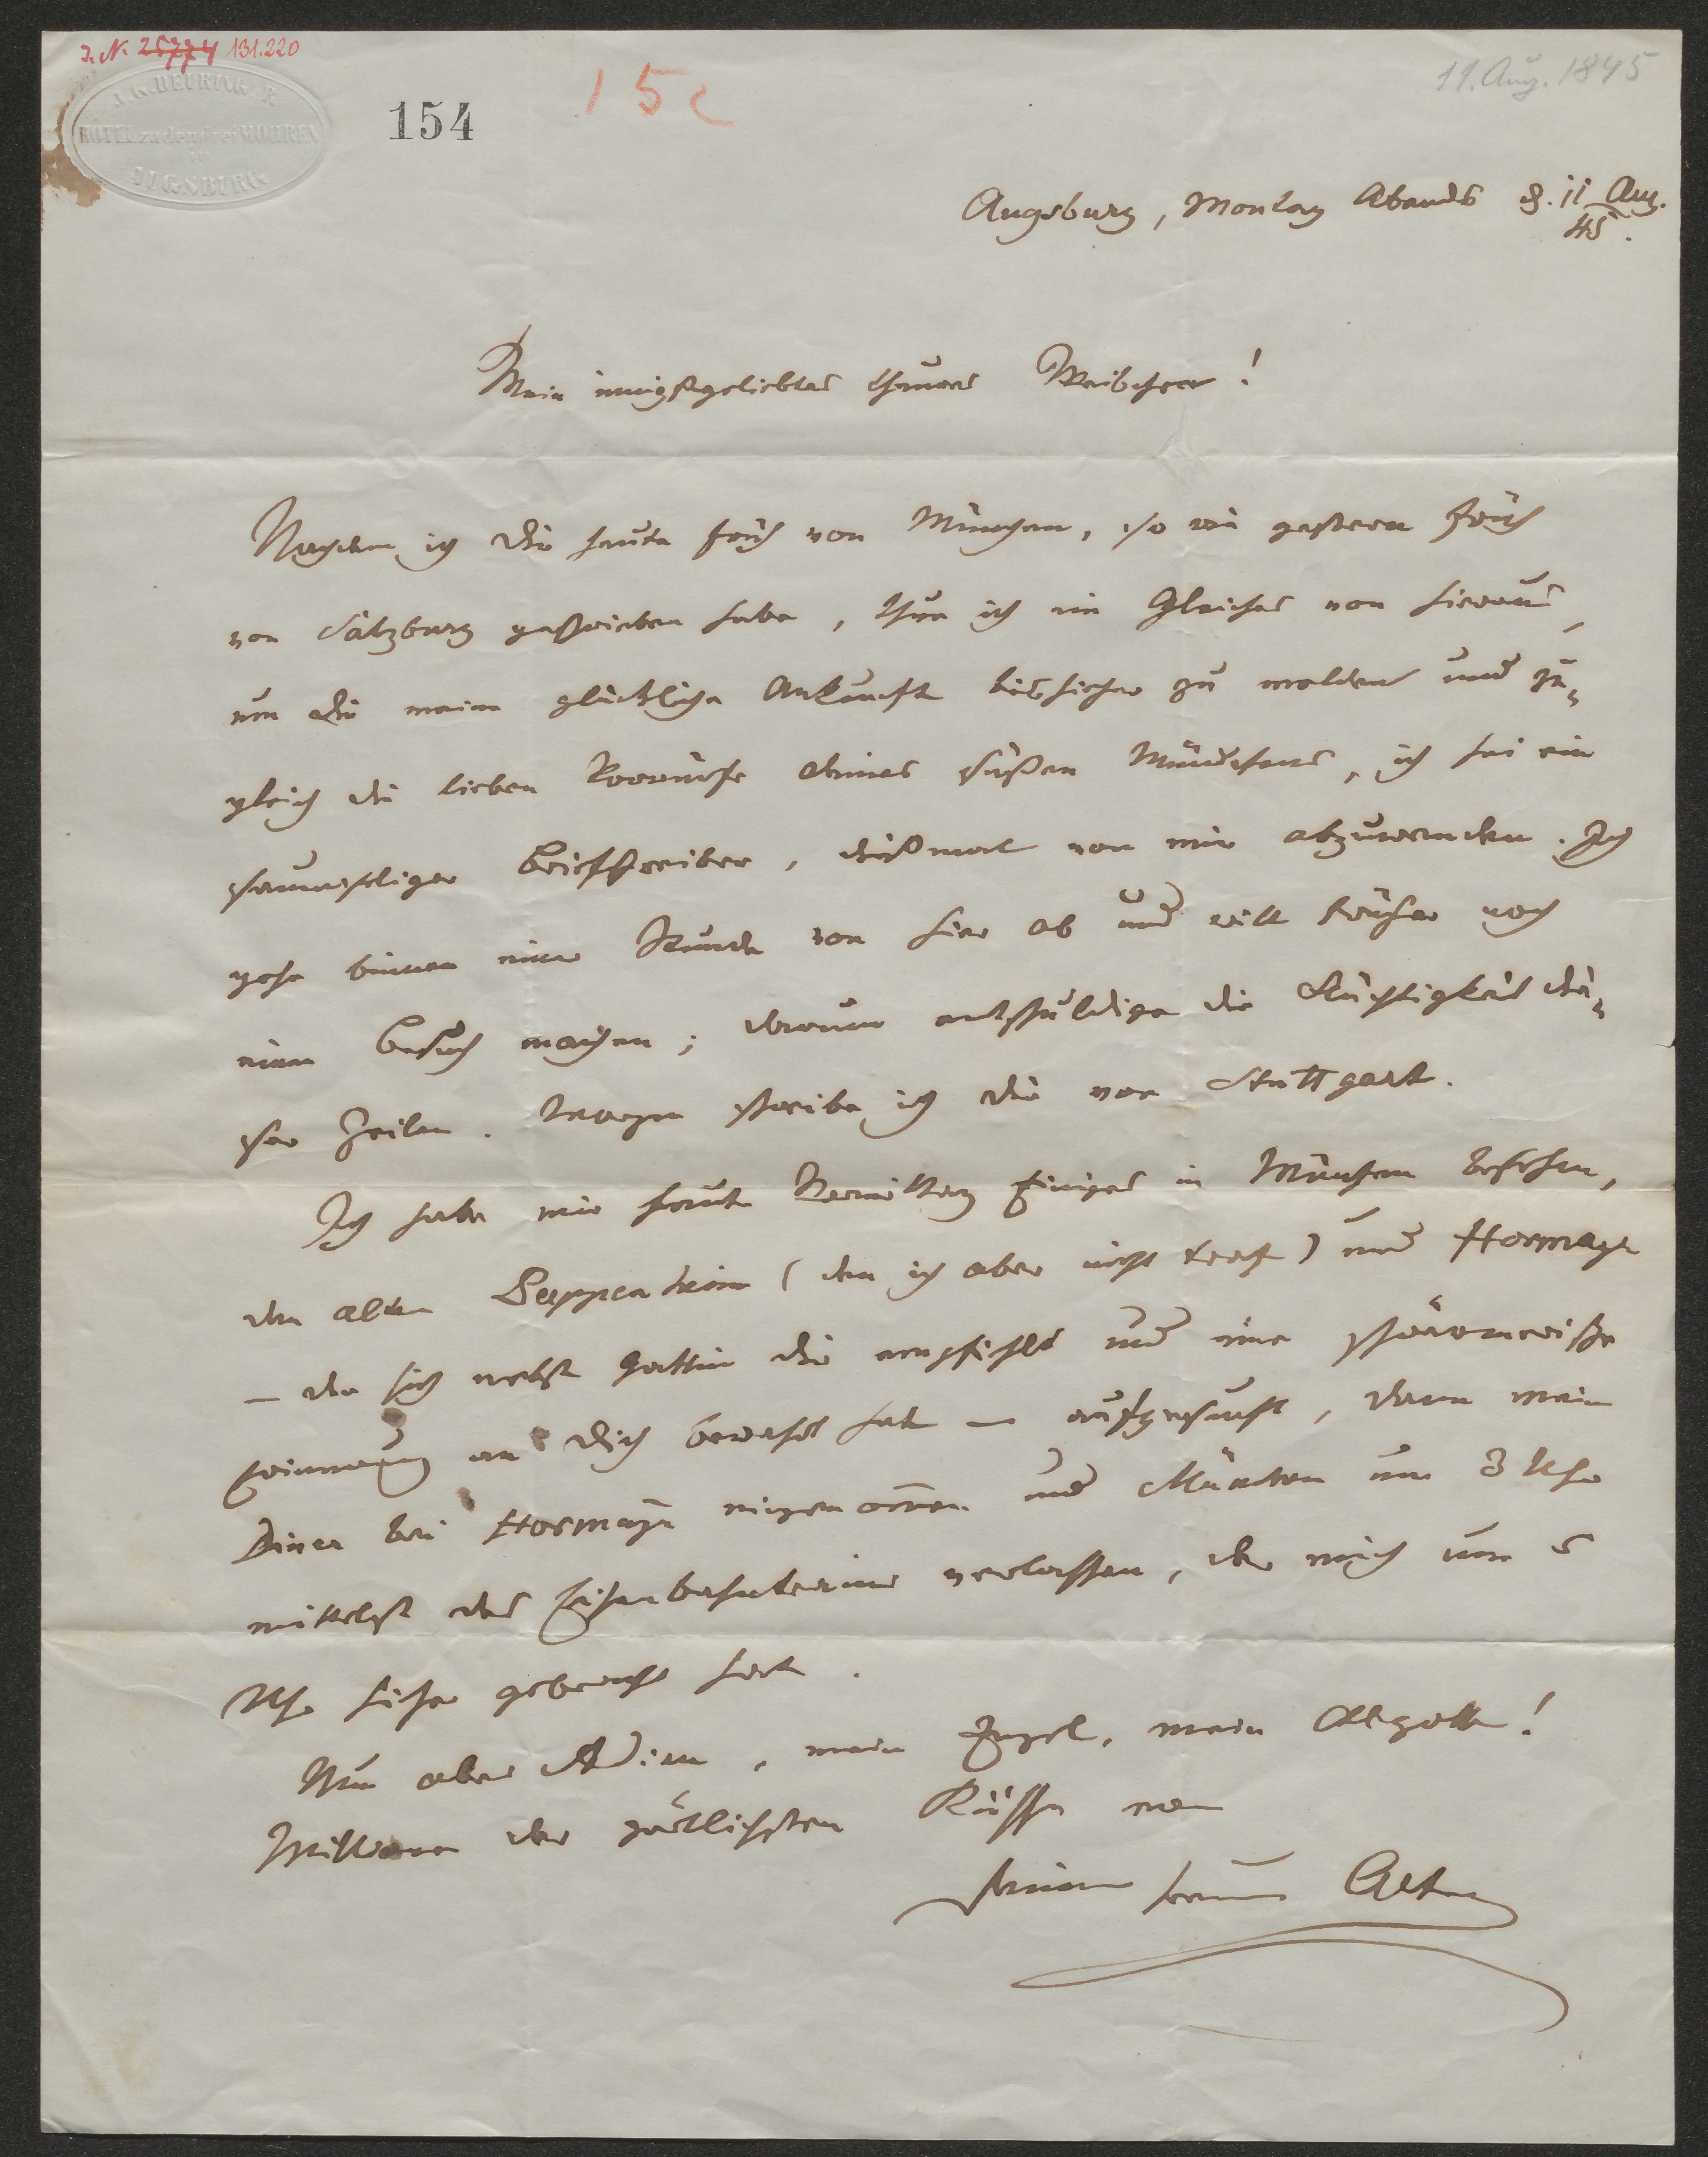 I. N. 25774 131.220
J. G. DEURINGER
HOTEL zu den drei MOHREN
in
AUGSBURG
154
15c
11. Aug. 1845
Augsburg, Montag Abends d. 11 Aug.
45.
Mein innigstgeliebtes theures Weibchen!
Nachdem ich Dir heute früh von München, so wie gestern früh
von Salzburg geschrieben habe, thue ich ein Gleiches von hieraus,
um Dir meine glückliche Ankunft bishieher zu melden und zu-
gleich die lieben Vorwürfe Deines süßen Mündchens, ich sei ein
saumseliger Briefschreiber, dießmal von mir abzuwenden. Ich
gehe binnen einer Stunde von hier ab und will früher noch
einen Besuch machen; darum entschuldige die Flüchtigkeit die-
ser Zeilen. Morgen schreibe ich Dir von Stuttgart.
Ich habe mir heute Vormittag Einiges in München besehen,
den alten Pappenheim (den ich aber nicht traf) und Hormayr
– der sich nebst Gattin Dir empfiehlt und eine schwärmerische
Erinnerung an Dich bewahrt hat – aufgesucht, dann mein
Diner bei Hormayr eingenommen und München um 3 Uhr
mittelst des Eisenbahntrains verlassen, der mich um 5
Uhr hieher gebracht hat.
Nun aber Adieu, mein Engel, mein Abgott!
Millionen der zärtlichsten Küsse von
Deinem treuen Alten